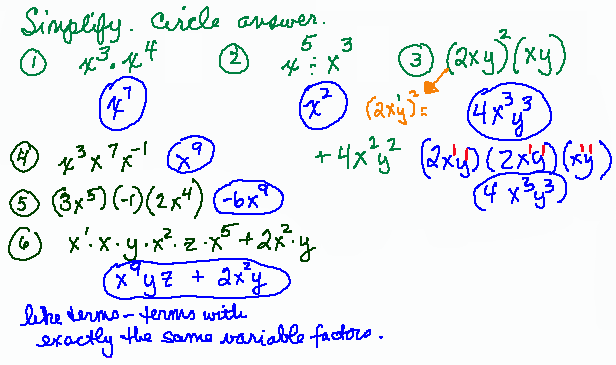 Simplify. Circle answer.
① x³·x⁴ ② x⁵ ÷ x³ ③ (2xy)²(xy)
x⁷ x² (2x'y')² = 4x³y³
+4x²y² (2x'y')(2x'y')(x'y')
④ x³x⁷x⁻¹ x⁹ (4x³y³)
⑤ (3x⁵)(-1)(2x⁴) -6x⁹
⑥ x'·x·y·x²·z·x⁵+2x²·y
x⁹yz + 2x²y
like terms - terms with
exactly the same variable factors.